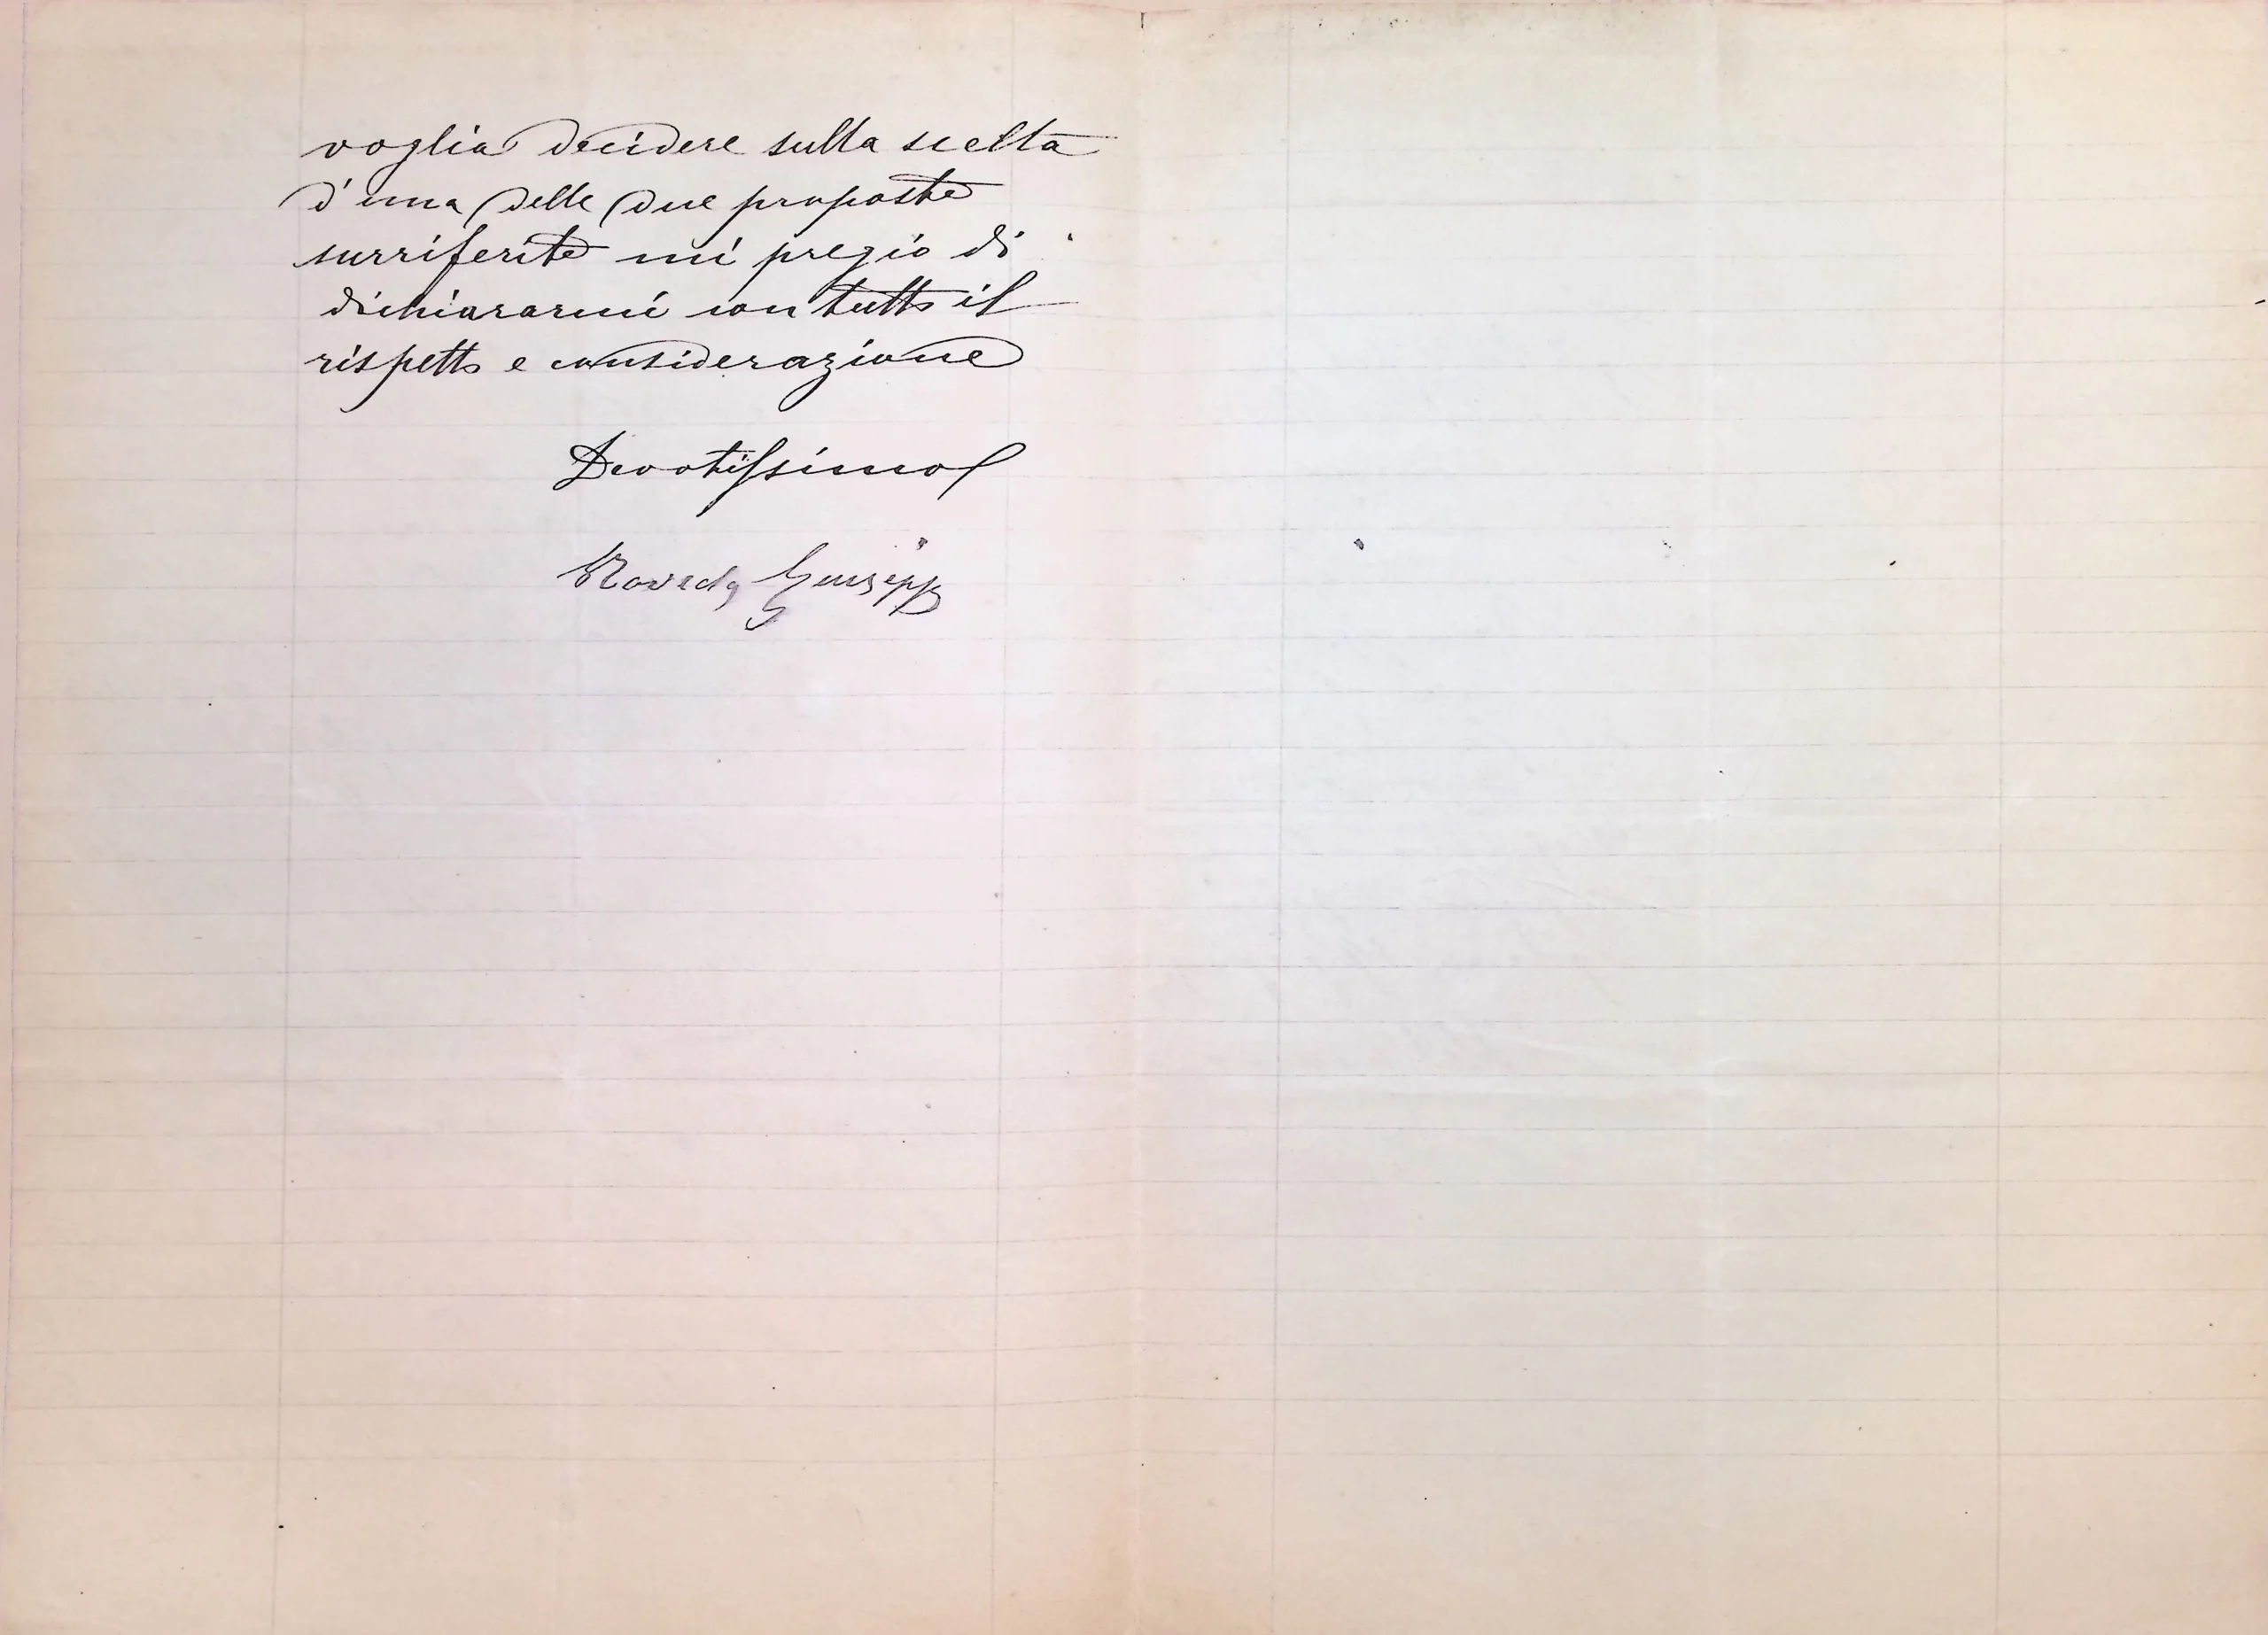 voglia decidere sulla scelta
d'una delle due proposte
surriferite mi pregio di
dichiararmi con tutto il
rispetto e considerazione
Devotissimo
Roveda Giuseppe